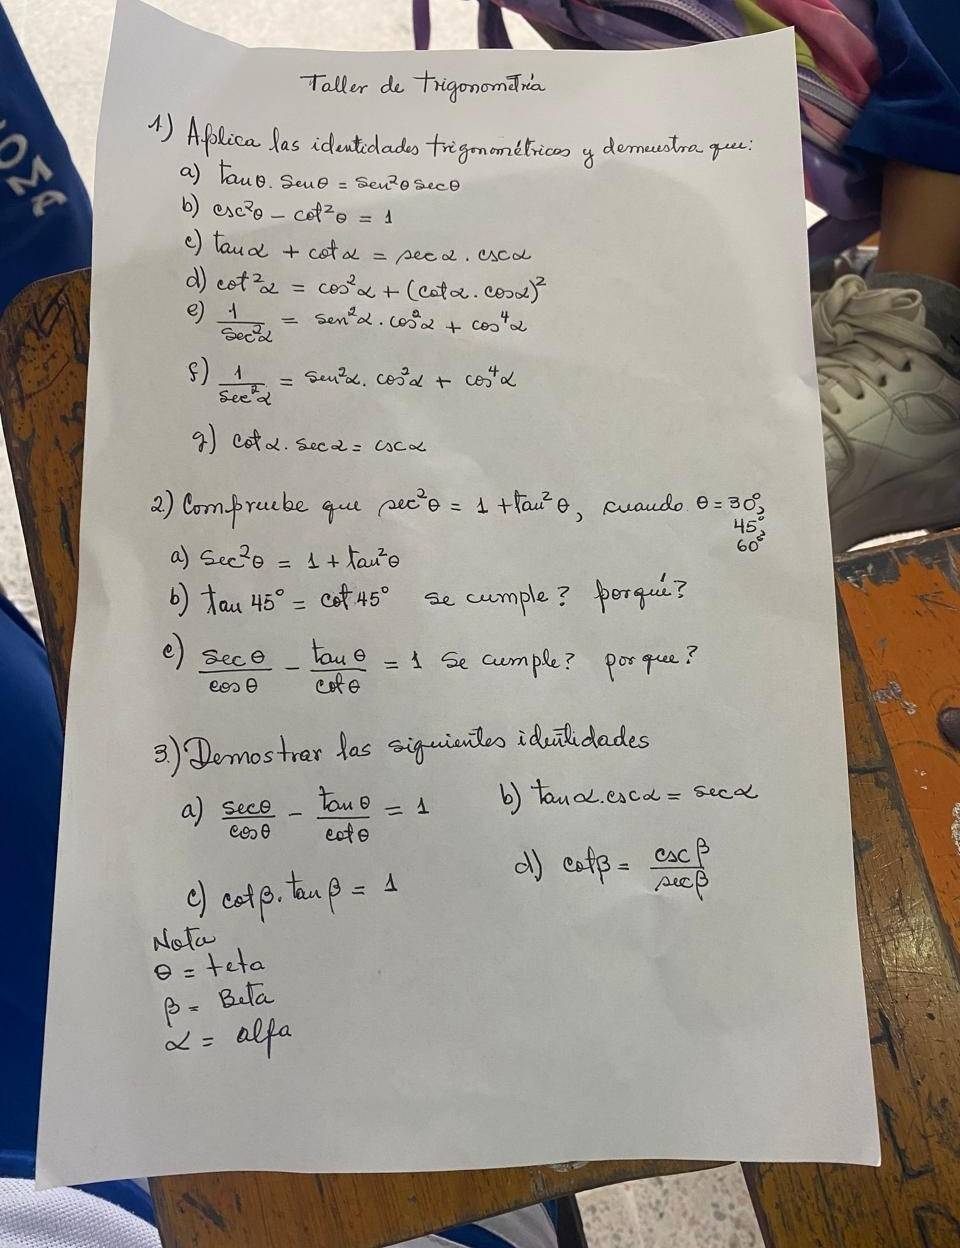 Taller de trigonometría
1.) Aplica las identidades trigonométricas y demuestra que:
a) tanθ. senθ = sen²θ secθ
b) csc²θ - cot²θ = 1
c) tanα + cotα = secα . cscα
d) cot²α = cos²α + (cotα. cosα)²
e) 1/sec²α = sen²α. cos²α + cos⁴α
f) 1/sec²α = sen²α. cos²α + cos⁴α
g) cotα. secα = cscα
2.) Compruebe que sec²θ = 1 + tan²θ, cuando θ = 30°,
45°,
60°
a) sec²θ = 1 + tan²θ
b) tan 45° = cot 45° se cumple? porqué?
c) secθ/cosθ - tanθ/cotθ = 1 se cumple? por que?
3.) Demostrar las siguientes identidades
a) secθ/cosθ - tanθ/cotθ = 1 b) tanα.cscα = secα
c) cotβ. tanβ = 1 d) cotβ = cscβ/secβ
Nota
θ = teta
β = Beta
α = alfa
OMA